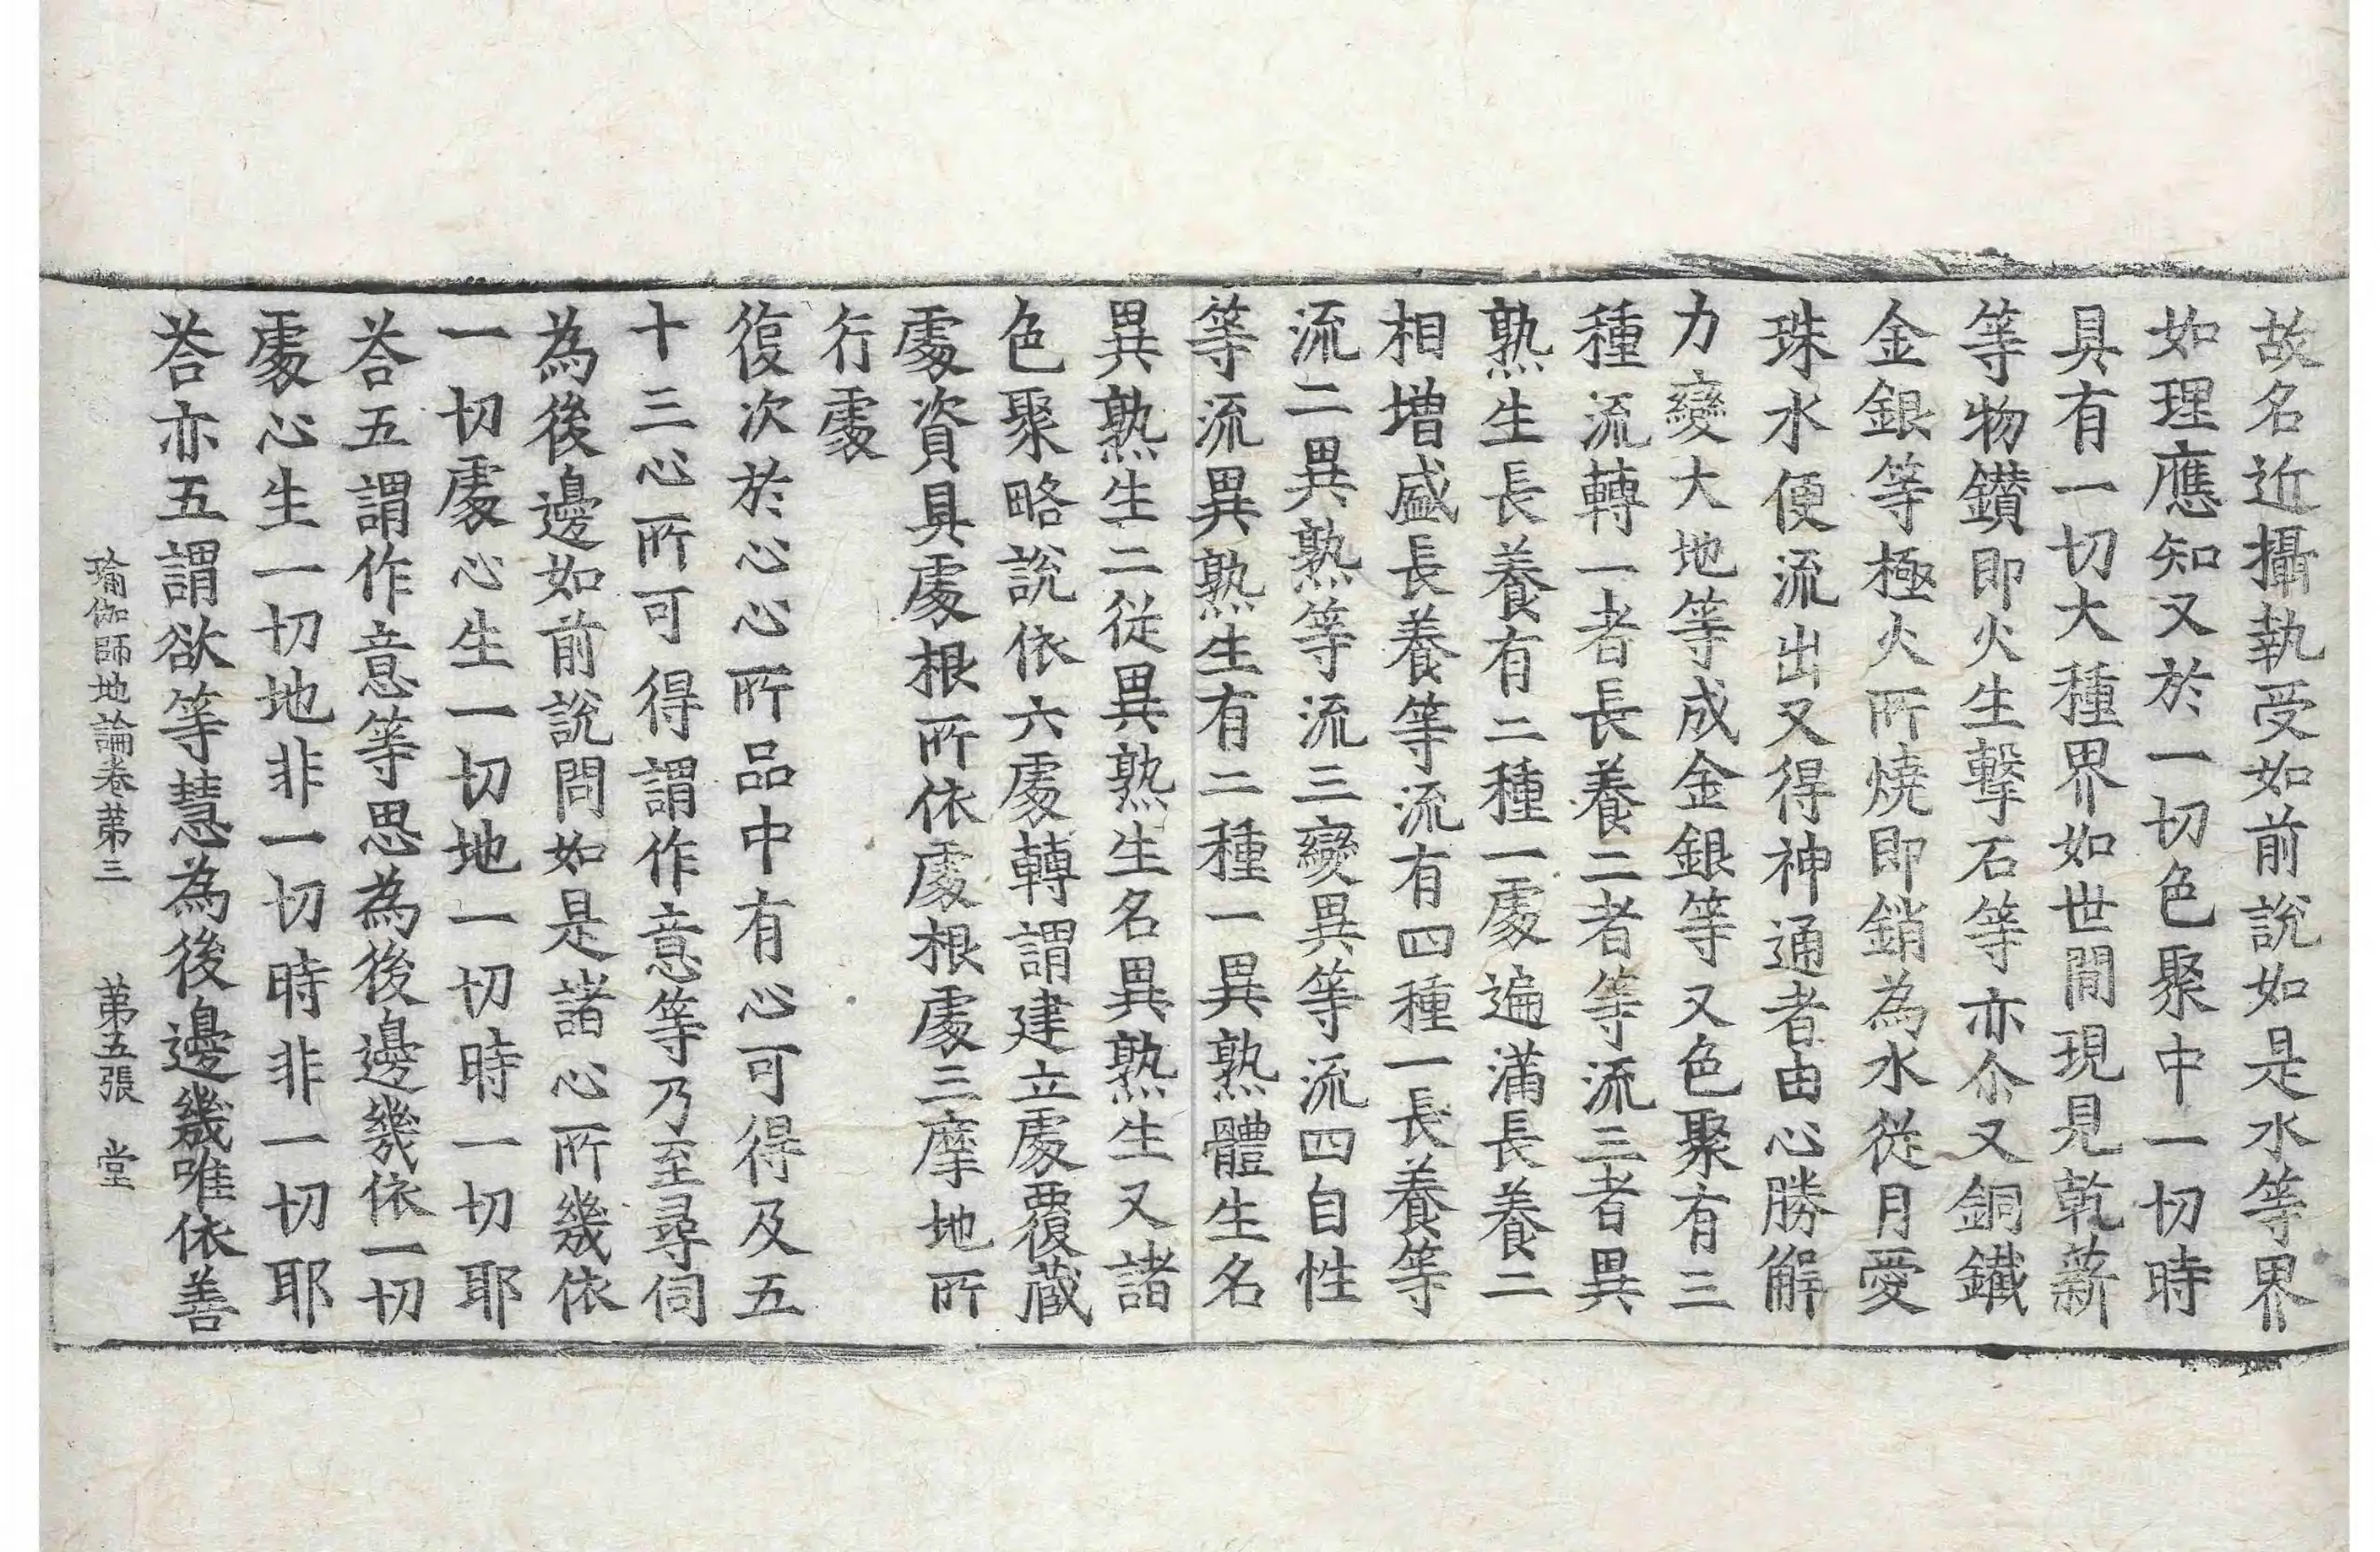 故名近攝執受如前說如是水等界
如理應知又於一切色聚中一切時
具有一切大種界如世間現見乾薪
等物鑽即火生擊石等亦尒又銅鐵
金銀等極火所燒即銷為水從月愛
珠水便流出又得神通者由心勝解
力變大地等成金銀等又色聚有三
種流轉一者長養二者等流三者異
熟生長養有二種一處遍滿長養二
相增盛長養等流有四種一長養等
流二異熟等流三變異等流四自性
等流異熟生有二種一異熟體生名
異熟生二從異熟生名異熟生又諸
色聚略說依六處轉謂建立處覆藏
處資具處根所依處根處三摩地所
行處
復次於心心所品中有心可得及五
十三心所可得謂作意等乃至尋伺
為後邊如前說問如是諸心所幾依
一切處心生一切地一切時一切耶
荅五謂作意等思為後邊幾依一切
處心生一切地非一切時非一切耶
荅亦五謂欲等慧為後邊幾唯依善
瑜伽師地論卷第三 第五張 堂